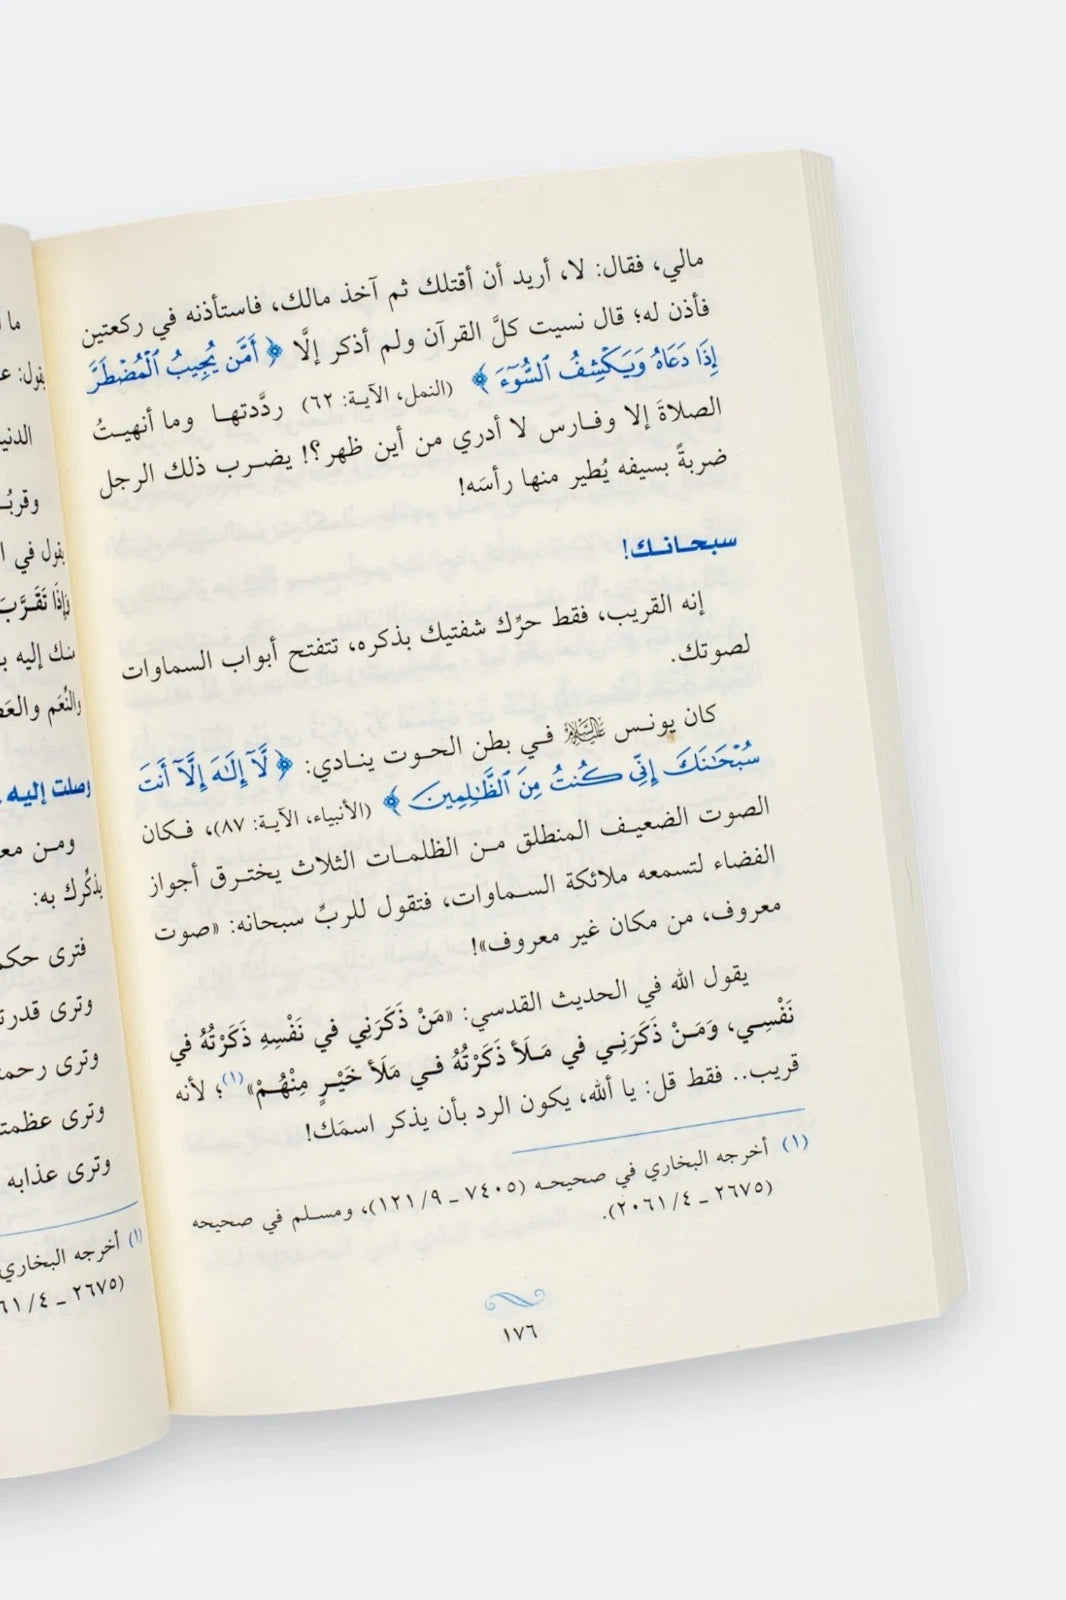 مالي، فقال: لا، أريد أن أقتلك ثم آخذ مالك، فاستأذنه في ركعتين
فأذن له؛ قال نسيت كلَّ القرآن ولم أذكر إلَّا ﴿ أَمَّن يُجِيبُ ٱلْمُضْطَرَّ
إِذَا دَعَاهُ وَيَكْشِفُ ٱلسُّوٓءَ ﴾ (النمل، الآية: ٦٢) ردَّدتها وما أنهيتُ
الصلاةَ إلا وفارس لا أدري من أين ظهر؟! يضرب ذلك الرجل
ضربةً بسيفه يُطير منها رأسَه!
سبحانك!
إنه القريب، فقط حرِّك شفتيك بذكره، تتفتح أبواب السماوات
لصوتك.
كان يونس عليه السلام في بطن الحوت ينادي: ﴿ لَّآ إِلَٰهَ إِلَّآ أَنتَ
سُبْحَٰنَكَ إِنِّي كُنتُ مِنَ ٱلظَّٰلِمِينَ ﴾ (الأنبياء، الآية: ٨٧)، فكان
الصوت الضعيف المنطلق من الظلمات الثلاث يخترق أجواز
الفضاء لتسمعه ملائكة السماوات، فتقول للربِّ سبحانه: «صوت
معروف، من مكان غير معروف»!
يقول الله في الحديث القدسي: «مَنْ ذَكَرَنِي في نَفْسِهِ ذَكَرْتُهُ في
نَفْسِي، وَمَنْ ذَكَرَنِي في مَلَأ ذَكَرْتُهُ في مَلَأ خَيْرٍ مِنْهُمْ»(١)؛ لأنه
قريب.. فقط قل: يا ألله، يكون الرد بأن يذكر اسمَك!
(١) أخرجه البخاري في صحيحه (٧٤٠٥ ـ ١٢١/٩)، ومسلم في صحيحه
(٢٦٧٥ ـ ٢٠٦١/٤).
١٧٦
ما
يقول: ع
الدنيـ
وقربُـ
يقول في ا
وَإِذَا تَقَرَّبَ
منك إليه بـ
والنِّعَم والعَط
وصلت إليه
ومن معـ
يذكِّرك به:
فترى حكمـ
وترى قدرتـ
وترى رحمتـ
وترى عظمتـ
وترى عذابه
(١) أخرجه البخاري
(٢٦٧٥ ـ ٤/